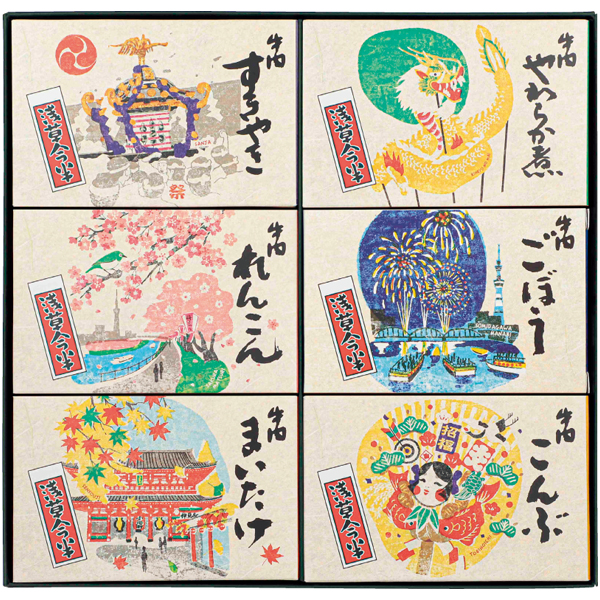 牛肉
すきやき
浅草今半
SANJA
祭
牛肉
やわらか煮
浅草今半
牛肉
れんこん
浅草今半
牛肉
ごぼう
浅草今半
SUMIDAGAWA
HANABI
牛肉
まいたけ
浅草今半
牛肉
こんぶ
浅草今半
招福